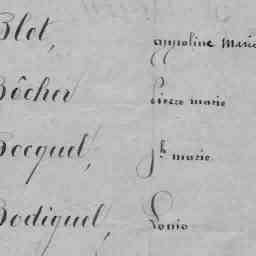 Blot, appoline Marie
Bôcher pierre marie
Bocquel, Jh marie
Bodiguel, Louis